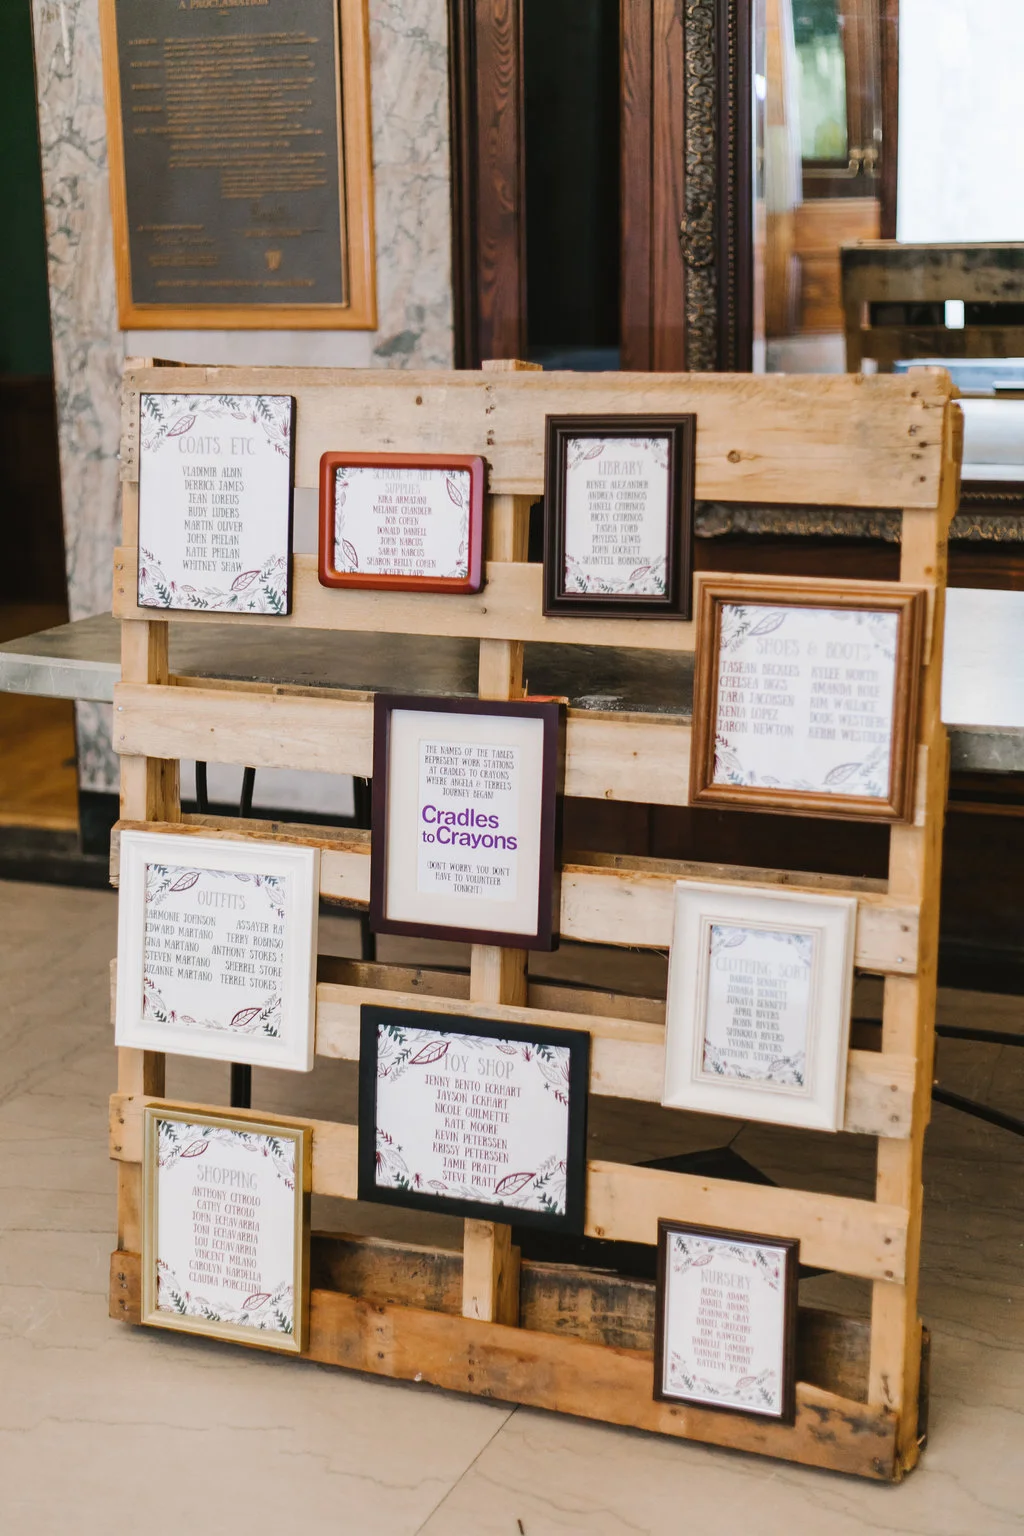 A PROCLAMATION
COATS, ETC
VLADIMIR ALBIN
DERRICK JAMES
JEAN LOREUS
RUDY LUDERS
MARTIN OLIVER
JOHN PHELAN
KATIE PHELAN
WHITNEY SHAW
SCHOOL & ART
SUPPLIES
KIRA ARMAJANI
MELANIE CHANDLER
BOB COHEN
DONALD DANIELL
JOHN NARCUS
SARAH NARCUS
SHARON REILLY COHEN
ZACHERY TAPP
LIBRARY
RENEE ALEXANDER
ANDREA CHIRINOS
JANELL CHIRINOS
RICKY CHIRINOS
TASHA FORD
PHYLISS LEWIS
JOHN LOCKETT
SHANTELL ROBINSON
SHOES & BOOTS
TASEAN BECKLES RYLEE NORTH
CHELSEA BIGGS AMANDA RUEL
TARA JACOBSEN KIM WALLACE
KENIA LOPEZ DOUG WESTBERG
JARON NEWTON KERRI WESTBERG
THE NAMES OF THE TABLES
REPRESENT WORK STATIONS
AT CRADLES TO CRAYONS
WHERE ANGELA & TERREL'S
JOURNEY BEGAN!
Cradles
to Crayons
(DON'T WORRY, YOU DON'T
HAVE TO VOLUNTEER
TONIGHT)
OUTFITS
HARMONIE JOHNSON ASSAYER RA
EDWARD MARTANO TERRY ROBINSO
GINA MARTANO ANTHONY STOKES
STEVEN MARTANO SHERREL STOKE
SUZANNE MARTANO TERREL STOKES
CLOTHING SORT
BENNETT
BENNETT
JUNAYA BENNETT
APRIL RIVERS
ROBIN RIVERS
RIVERS
YVONNE RIVERS
ANTHONY STOKES
TOY SHOP
JENNY BENTO ECKHART
JAYSON ECKHART
NICOLE GUILMETTE
KATE MOORE
KEVIN PETERSSEN
KRISSY PETERSSEN
JAMIE PRATT
STEVE PRATT
SHOPPING
ANTHONY CITROLO
CATHY CITROLO
JOHN ECHAVARRIA
JONI ECHAVARRIA
LOU ECHAVARRIA
VINCENT MILANO
CAROLYN NARDELLA
CLAUDIA PORCELLI
NURSERY
ALISHA ADAMS
DANIEL ADAMS
SHANNON GRAY
DANIEL GREGOIRE
KIM KAWECKI
DANIELLE LAMBERT
HANNAH PERRINE
KATELYN RYAN